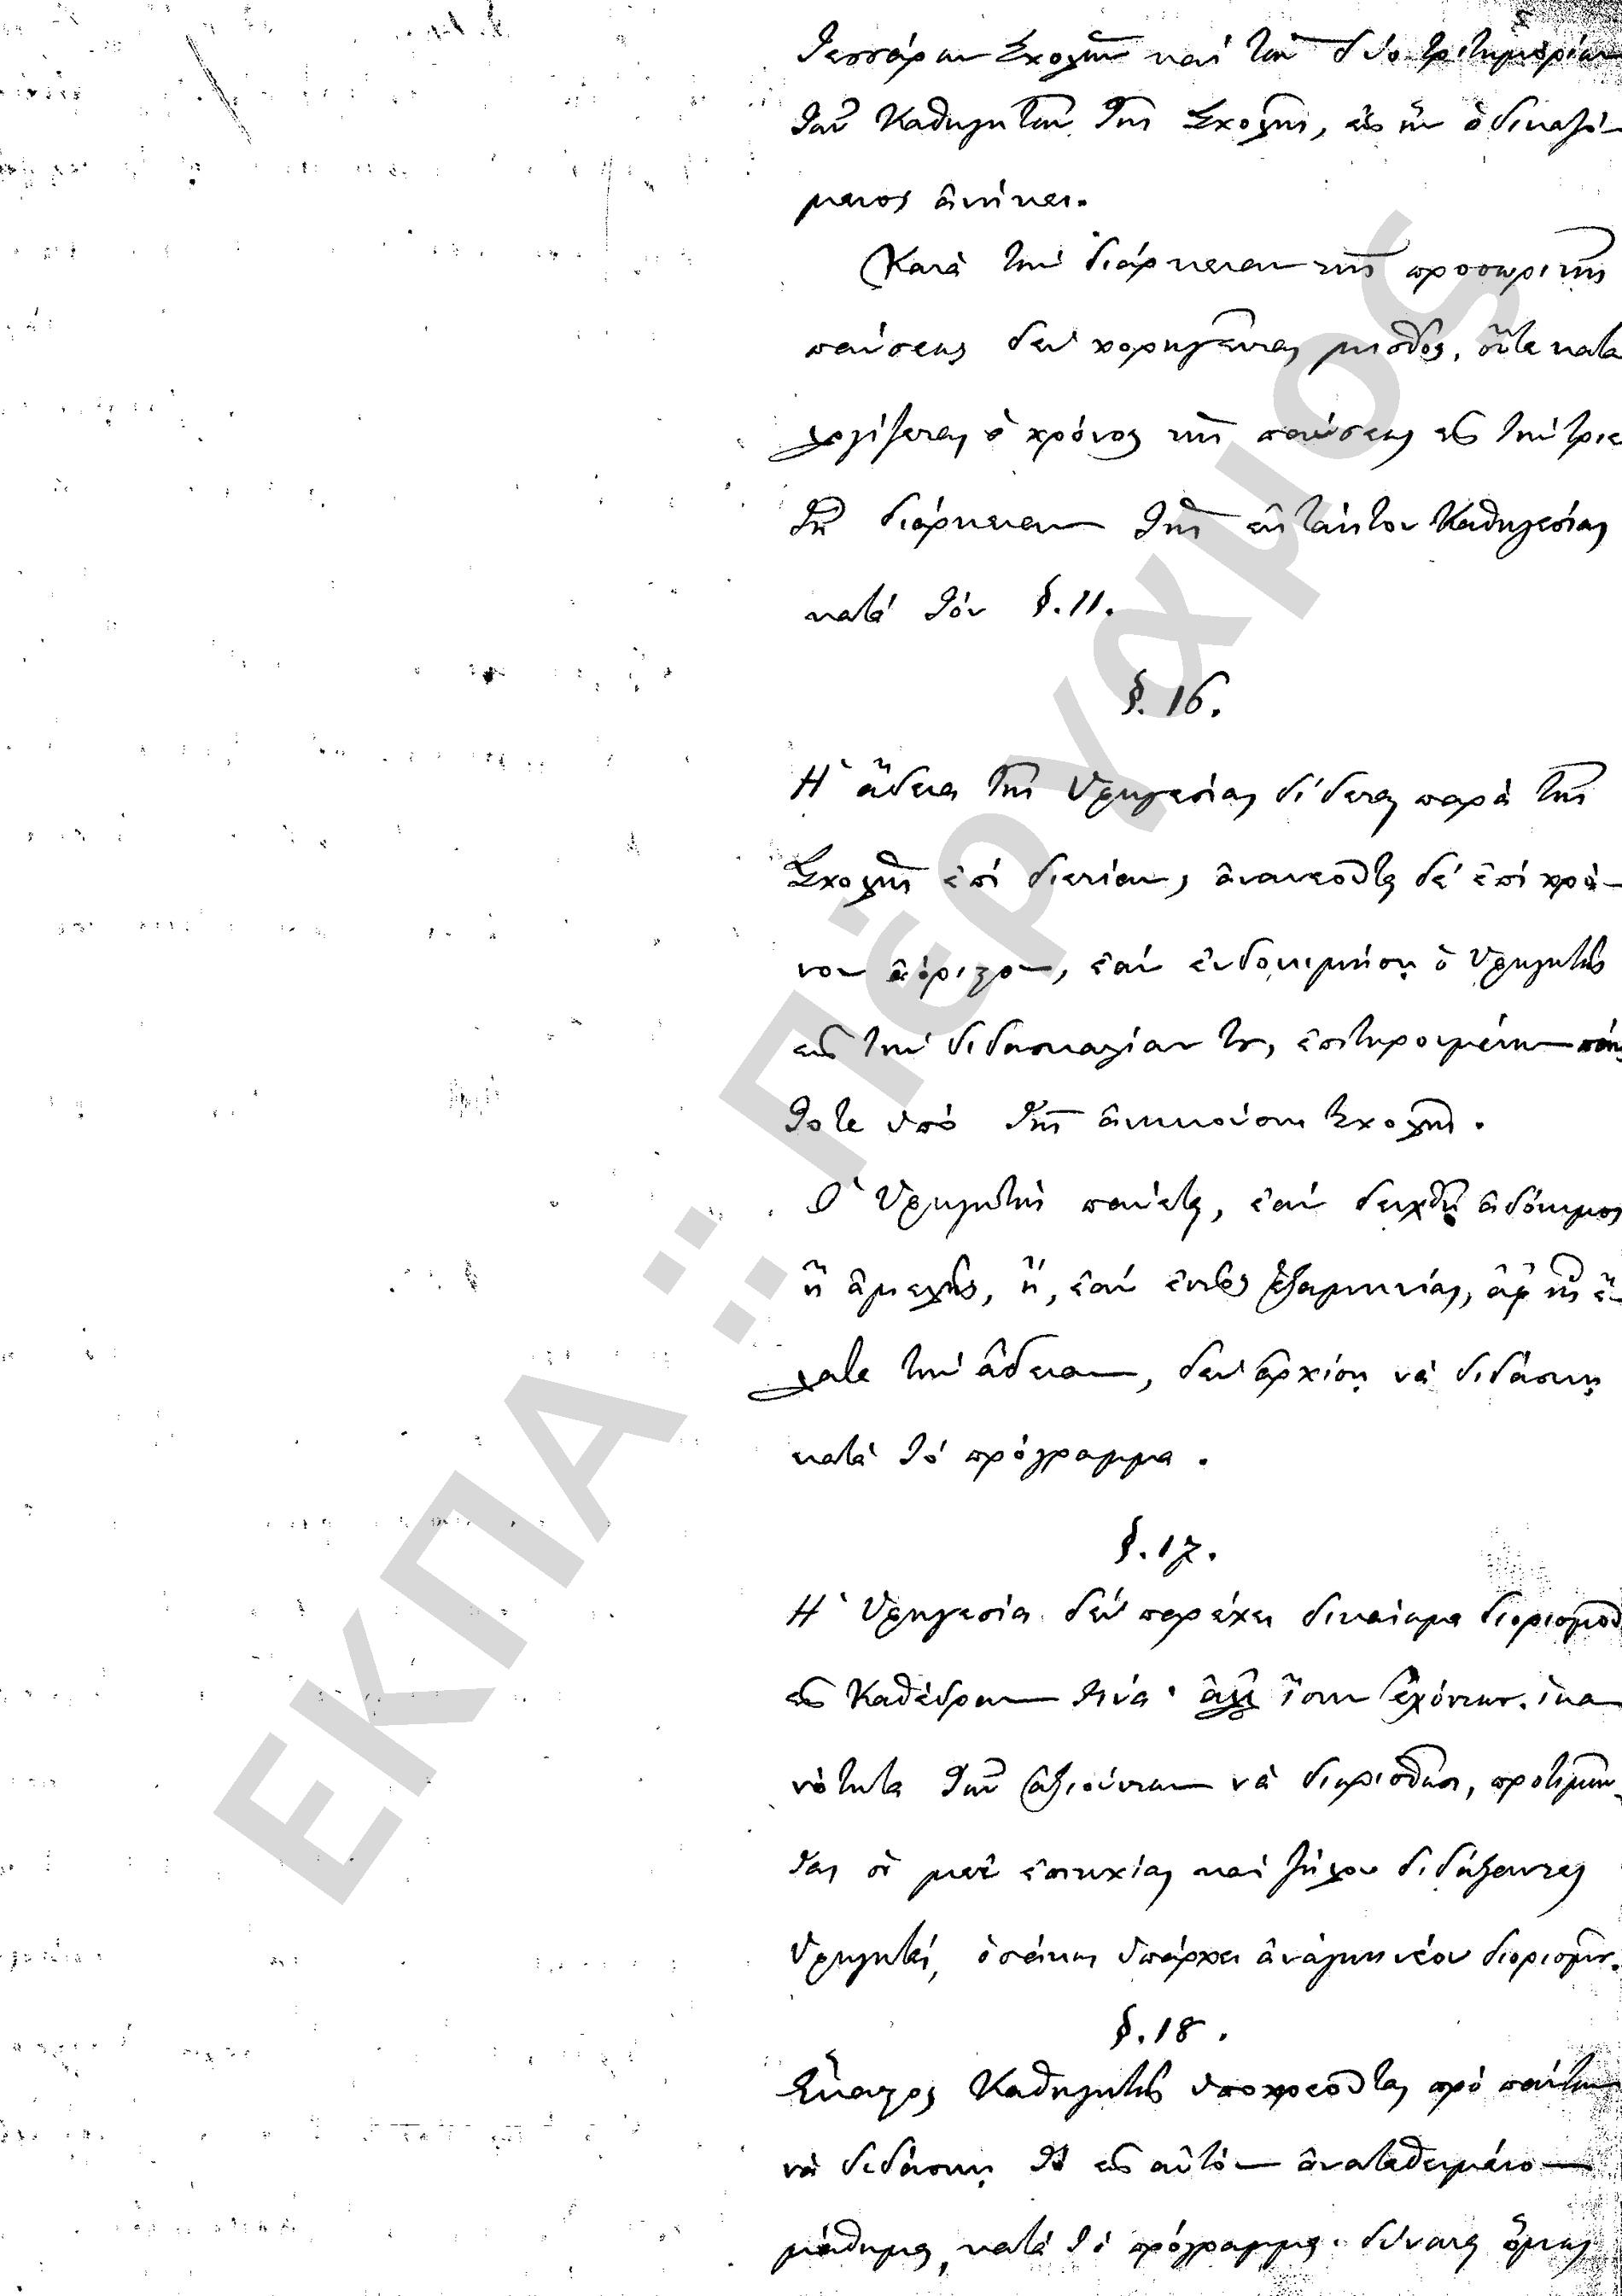 τεσσάρων Σχολῶν καὶ τῶν δύο τριτημορίων
τῶν Καθηγητῶν τῆς Σχολῆς, εἰς ἣν ὁ δικαζό-
μενος ἀνήκει.
Κατὰ τὴν διάρκειαν τῆς προσωρινῆς
παύσεως δὲν χορηγεῖται μισθὸς, οὔτε κατα
λογίζεται ὁ χρόνος τῆς παύσεως εἰς τὴν τριε
τῆ διάρκειαν τῆς ἐκτάκτου Καθηγεσίας
κατὰ τὸν §. 11.
§. 16.
Ἡ ἄδεια τῆς Ὑφηγεσίας δίδεται παρὰ τῆς
Σχολῆς ἐπὶ διετίαν, ἀνανεοῦται δὲ ἐπὶ χρό-
νον ἀόριστον, ἐὰν εὐδοκιμήσῃ ὁ Ὑφηγητὴς
εἰς τὴν διδασκαλίαν του, ἐπιτηρουμένην πάν
τοτε ὑπὸ τῆς ἀνηκούσης Σχολῆς.
Ὁ Ὑφηγητὴς παύεται, ἐὰν δειχθῇ ἀδόκιμος
ἢ ἀμελὴς, ἢ, ἐὰν ἐντὸς ἑξαμηνίας, ἀφ' ἧς ἔ-
λαβε τὴν ἄδειαν, δὲν ἀρχίσῃ νὰ διδάσκῃ
κατὰ τὸ πρόγραμμα.
§. 17.
Ἡ Ὑφηγεσία δὲν παρέχει δικαίωμα διορισμοῦ
εἰς Καθέδραν τινά· ἀλλ' ἴσην ἐχόντων ἱκα
νότητα τῶν ἀξιούντων νὰ διορισθῶσι, προτιμῶν-
ται οἱ μετ' ἐπιτυχίας καὶ ζήλου διδάξαντες
Ὑφηγηταὶ, ὁσάκις ὑπάρχει ἀνάγκη νέου διορισμοῦ.
§. 18.
Ἕκαστος Καθηγητὴς ὑποχρεοῦται πρὸ πάντων
νὰ διδάσκῃ τὸ εἰς αὐτὸν ἀνατεθειμένον
μάθημα, κατὰ τὸ πρόγραμμα· δύναται ὅμως
ΕΚΠΑ :: Πέργαμος